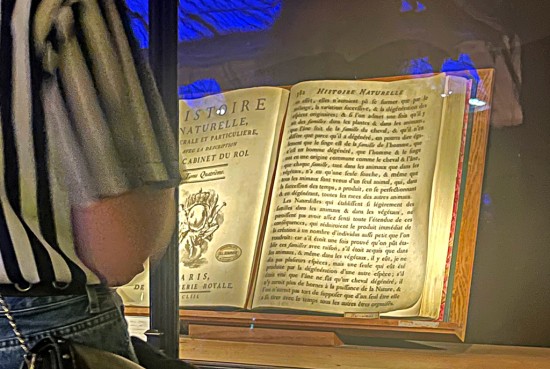 HISTOIRE
NATURELLE,
RALE ET PARTICULIERE,
AVEC LA DESCRIPTION
CABINET DU ROI
Tome Quatrième
ARIS,
DE RIE ROYALE,
CLIII
382 HISTOIRE NATURELLE
en effet, elles n'avoient pû se former que par le
mélange, la variation successive, & la dégénération des
espèces originaires; & si l'on admet une fois qu'il y
ait des familles dans les plantes & dans les animaux,
que l'âne soit de la famille du cheval, & qu'il n'en
diffère que parce qu'il a dégénéré, on pourra dire éga-
lement que le singe est de la famille de l'homme, que
c'est un homme dégénéré, que l'homme & le singe
ont eu une origine commune comme le cheval & l'âne,
que chaque famille, tant dans les animaux que dans les
végétaux, n'a eu qu'une seule souche, & même que
tous les animaux sont venus d'un seul animal, qui, dans
la succession des temps, a produit, en se perfectionnant
& en dégénérant, toutes les races des autres animaux.
Les Naturalistes qui établissent si légèrement des
familles dans les animaux & dans les végétaux, ne
paroissent pas avoir assez senti toute l'étendue de ces
conséquences, qui réduiroient le produit immédiat de
la création à un nombre d'individus aussi petit que l'on
voudroit: car s'il étoit une fois prouvé qu'on pût éta-
blir ces familles avec raison, s'il étoit acquis que dans
les animaux, & même dans les végétaux, il y eût, je ne
dis pas plusieurs espèces, mais une seule qui eût été
produite par la dégénération d'une autre espèce; s'il
étoit vrai que l'âne ne fût qu'un cheval dégénéré, il
n'y auroit plus de bornes à la puissance de la Nature, &
l'on n'auroit pas tort de supposer que d'un seul être elle
a sû tirer avec le temps tous les autres êtres organisés.